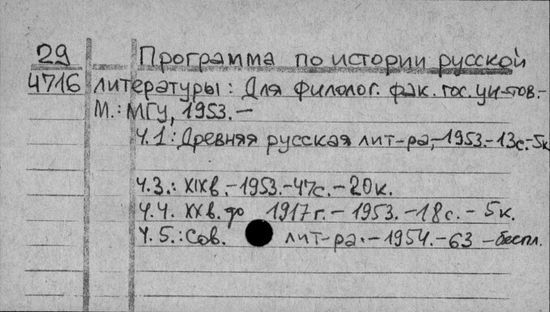 29 Программа по истории русской
4716 литературы: Для филолог. фак. гос. ун-тов.-
М.: МГУ, 1953.-
Ч.1: Древняя русская лит-ра,-1953.-13с.-5к
Ч.3.: XIXв.-1953.-47с.-20к.
Ч.4. XXв. до 1917г.-1953.-18с.-5к.
Ч.5.: Сов. лит-ра.-1954.-63-беспл.